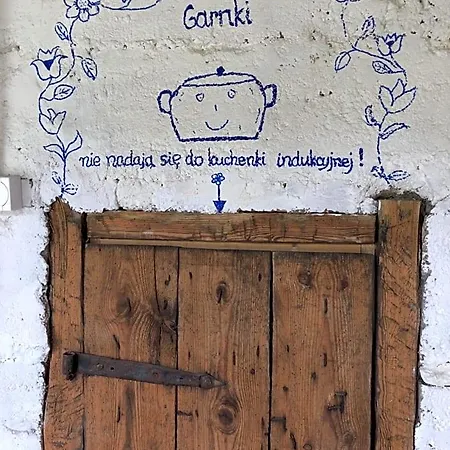 Garnki
nie nadają się do kuchenki indukcyjnej!